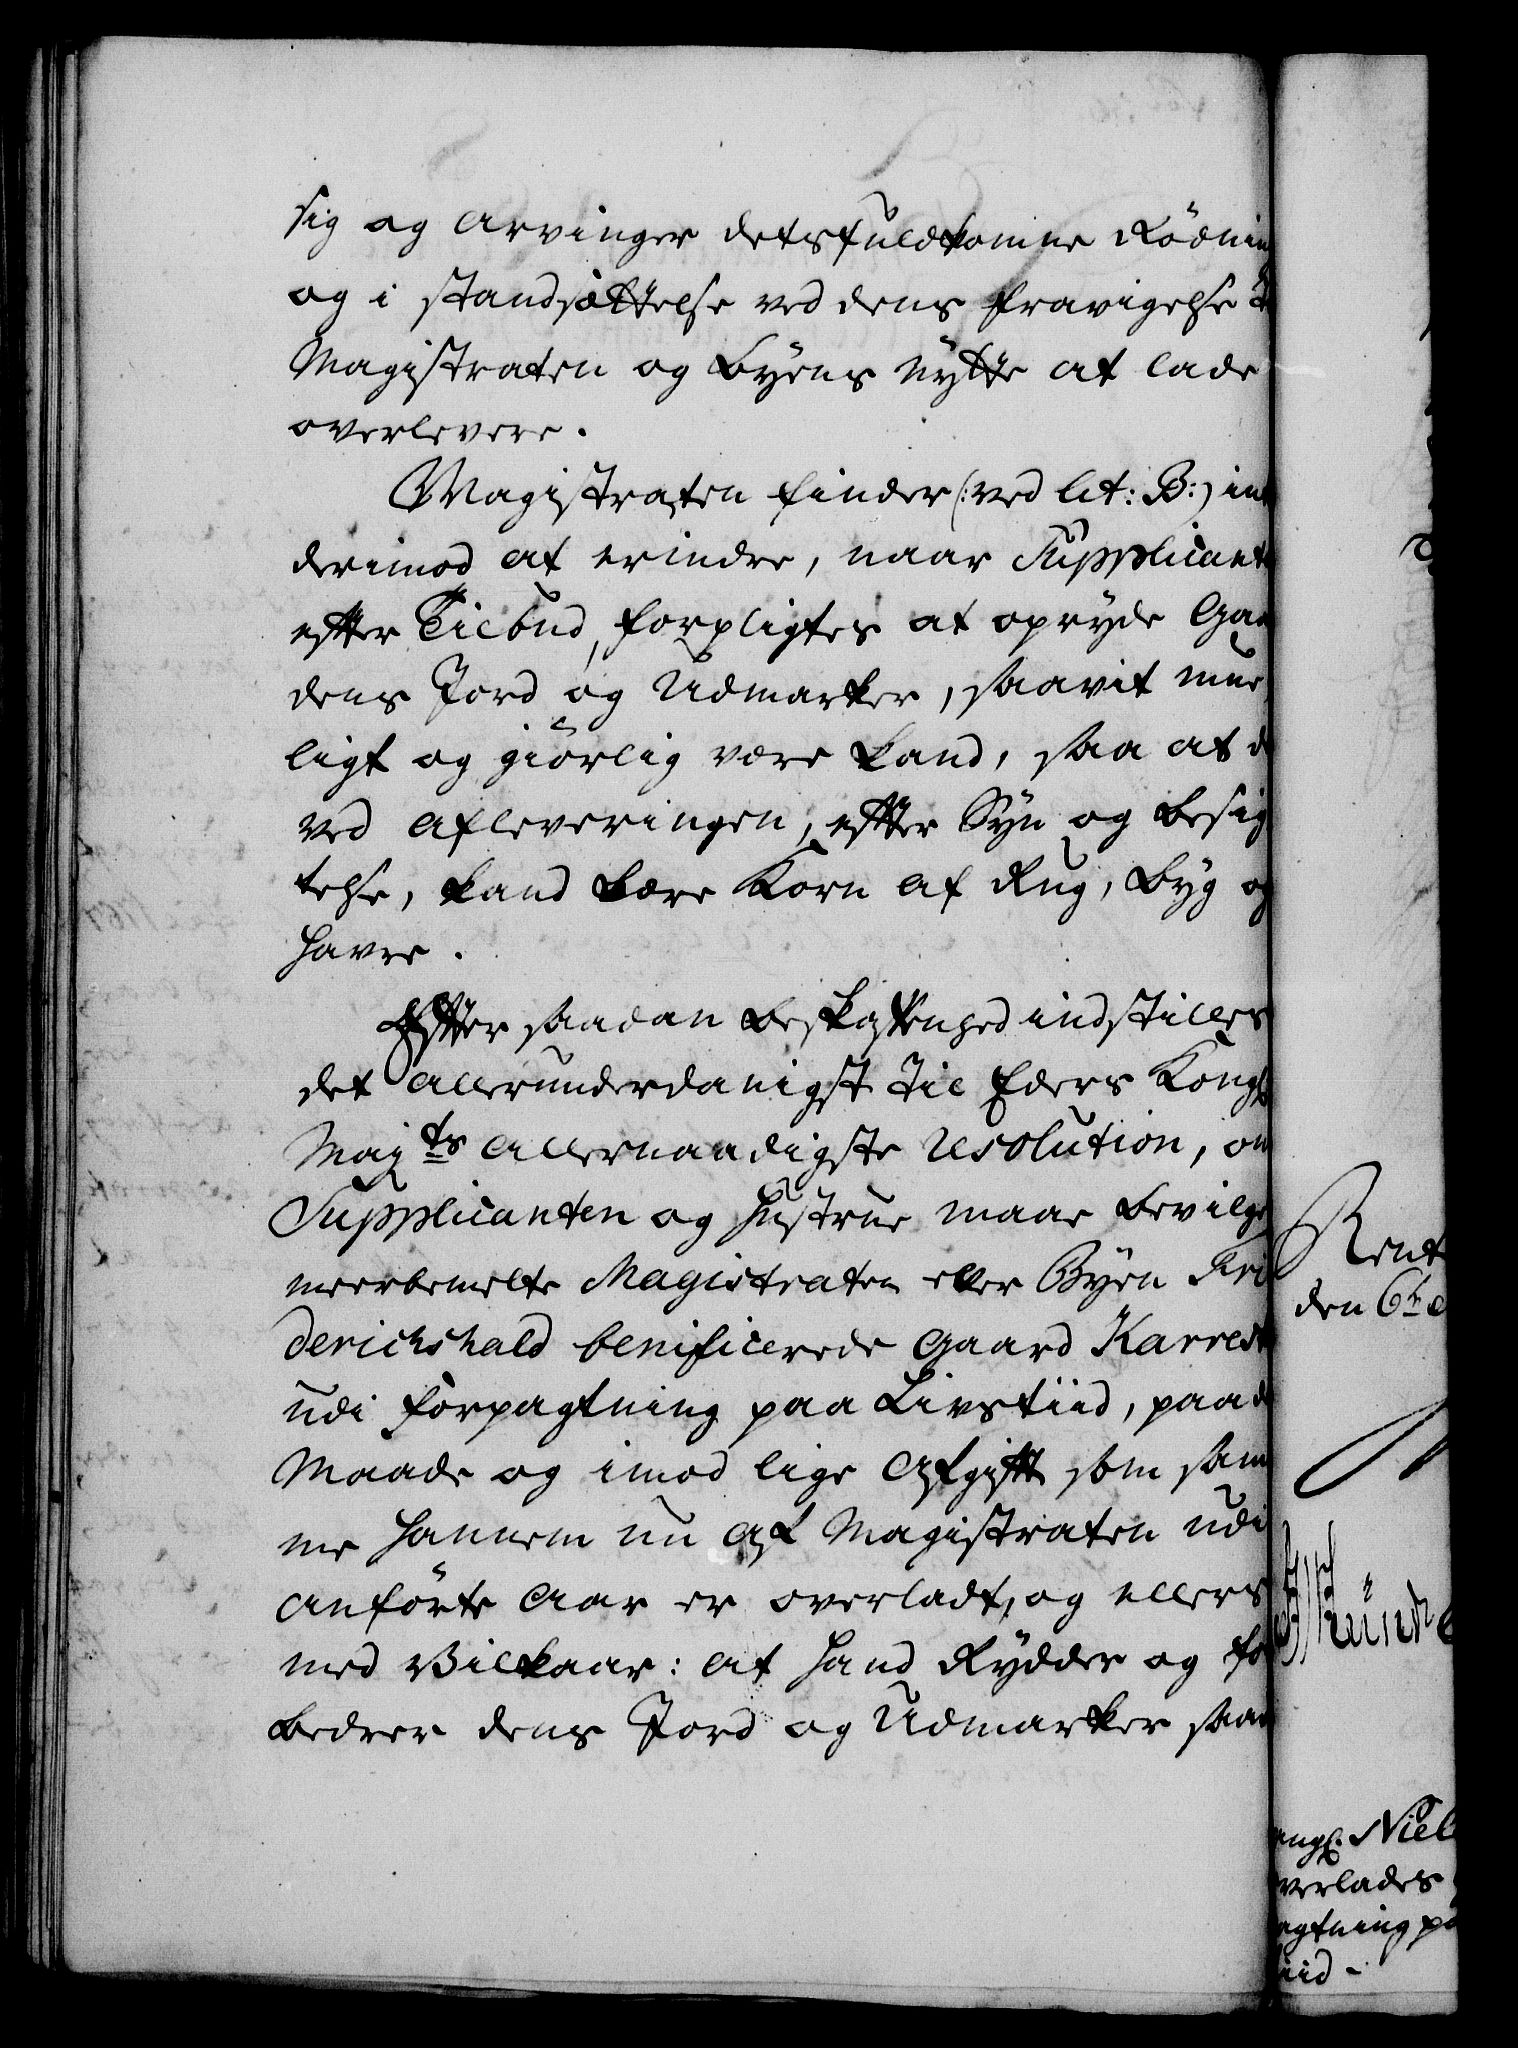 sig og Arvinger detsfuldkomne Rödnin
og i standsættelse ved dens fravigelse
Magistraten og Byens nÿtte at lade
overlevere.
Magistraten finder (: ved lit: B:) in
derimod at erindre, naar Supplicant
efter Tilbud, forpligtes at oprÿde Gaa
dens Jord og Udmarker, saavit mue
ligt og giörlig være kand, saa at d
ved Afleveringen, efter Sÿn og besig
telse, kand bære Korn af Rug, Bÿg og
Havre.
Efter saadan beskaffenhed indstilles
det allerunderdanigst til Eders Kongl
Majts allernaadigste resolution, om
Supplicanten og Hustrue maae bevilge
meerbemelte Magistraten eller Bÿen Fri
derichshald benificerede Gaard Karrest
udi forpagtning paa Livstiid, paa d
Maade og imod lige Afgift som sam
me hannem nu af Magistraten udi
anförte Aar er overladt, og ellers
med Vilkaar: at hand Rÿdder og fo
bedrer dens Jord og Udmarker saa
Rent
den 6te
angl. Niel
verlades
agtning pa
tiid -